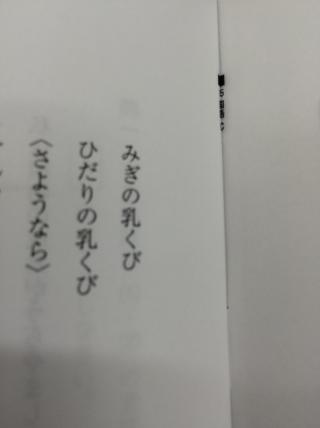 みぎの乳くび
ひだりの乳くび
〈さようなら〉